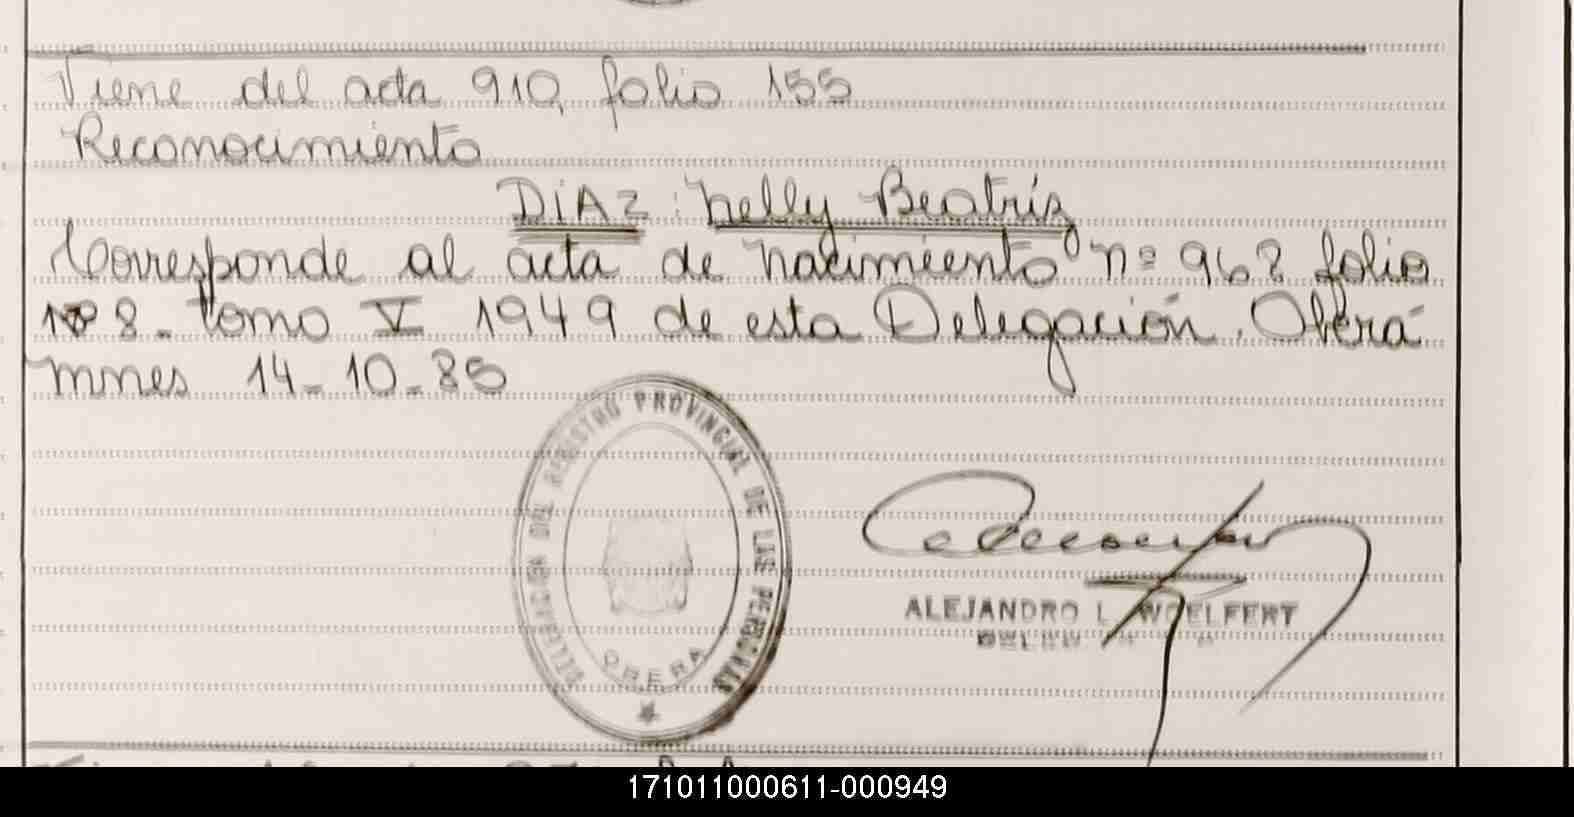 Viene del acta 910, folio 155
Reconocimiento
DíAz : Nelly Beatríz
Corresponde al acta de nacimiento nº 968 folio
8 - tomo V 1949 de esta Delegación. Oberá
mnes 14-10-85
DELEGACION DEL REGISTRO PROVINCIAL DE LAS PERSONAS
OBERA
ALEJANDRO L. WOELFERT
171011000611-000949